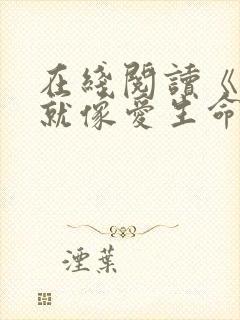 在綫閱讀《
就像愛生命
湮葉